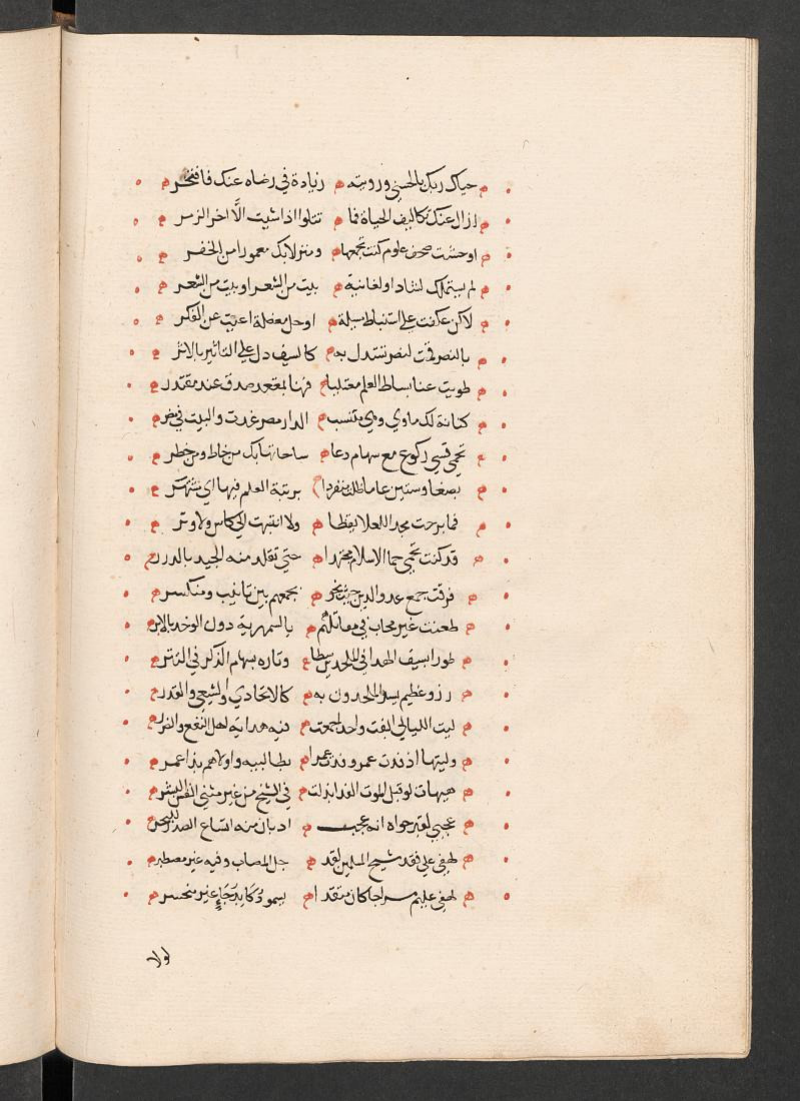 حياك ربك بالحسنى ورويته زيادة في رضاه عنك فافتخر
ازال عنك تكاليف الحياة فما تتلوا اذا شيت الا اخر الزمر
اوحشت صحف علوم كنت تجمعها ومنزلا بك معمورا من الخفر
لم يستملك لشاد او لغانية بيت من الشعر او بيت من الشعر
لاكن عكفت على استنباط مسيلة او حل معضلة اعيت عن الفكر
بالنصر قمت لنص تستدل به كالسيف دل على التاثير بالاثر
طويت عنا بساط العلم معتليا فهنا بمقعد صدق عند مقتدر
كنانة لك ماوى وهي منتسب الدار مصر غدت والبيت في مضر
تحمي قسي ركوع مع سهام دعا ساحاتها بك من خاط ومن خطر
بضعا وستين عاما ظلت منفردا برتبة العلم فيها اي مشتهر
فما برحت مجدا للعلا يقظا ولا انتبهت الى كاس ولا وتر
قد كنت تحمي حما الاسلام مجتهدا حتى تقلد منه الجيد بالدرر
فرقت جمع عدو الدين حيث نحو بجمعهم بين تانيب ومنكسر
طعنت غير محاب في مقاتلهم بالسمهرية دون الوخد بالابر
طورا بسيف الهدا في الملحدين سطا وتاره بسهام الذكر في التتر
رزو عظيم يسر الملحدون به كالاتحادي والشيعي والقدر
ليت الليالي ابقت واحدا جمعت فيه هداية لاهل النفع والضرر
وليتها اذ فدت عمرو فدى عمرا بطالبيه واولاهم بذا عمر
هيهات لو قبل الموت الفدا بذلت في الشيخ من غير مثنى انفس البشر
عجبي لقبر حواه انه عجب اذ بان منه اتساع الصدر للبحر
لهفي على فقد شيخ المسلمين لقد جل المصاب وفيه غير مصطبر
لهفي عليه سراجا كان متقدا يسمو ذكا بذكاء غير منحسر
لولا